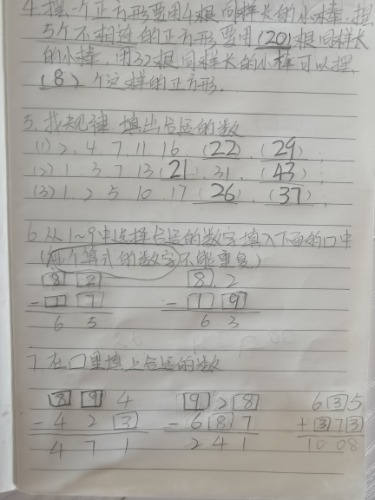 4.摆一个正方形要用4根同样长的小棒,摆
5个不相连的正方形要用(20)根同样长
的小棒,用32根同样长的小棒可以摆
(8)个这样的正方形.
5.找规律 填出合适的数
(1) 2. 4. 7. 11. 16. (22). (29);
(2) 1. 3. 7. 13 (21). 31. (43)
(3) 1. 2. 5. 10. 17 (26). (37);
6.从1~9中选择合适的数字填入下面的口中
(两个算式的数字不能重复)
8 2 8 2
- 7 - 1 9
6 5 6 3
7.在口里填上合适的数
8 9 4 9 2 8 6 3 5
- 4 2 3 - 6 8 7 + 3 7 3
4 7 1 2 4 1 10 08